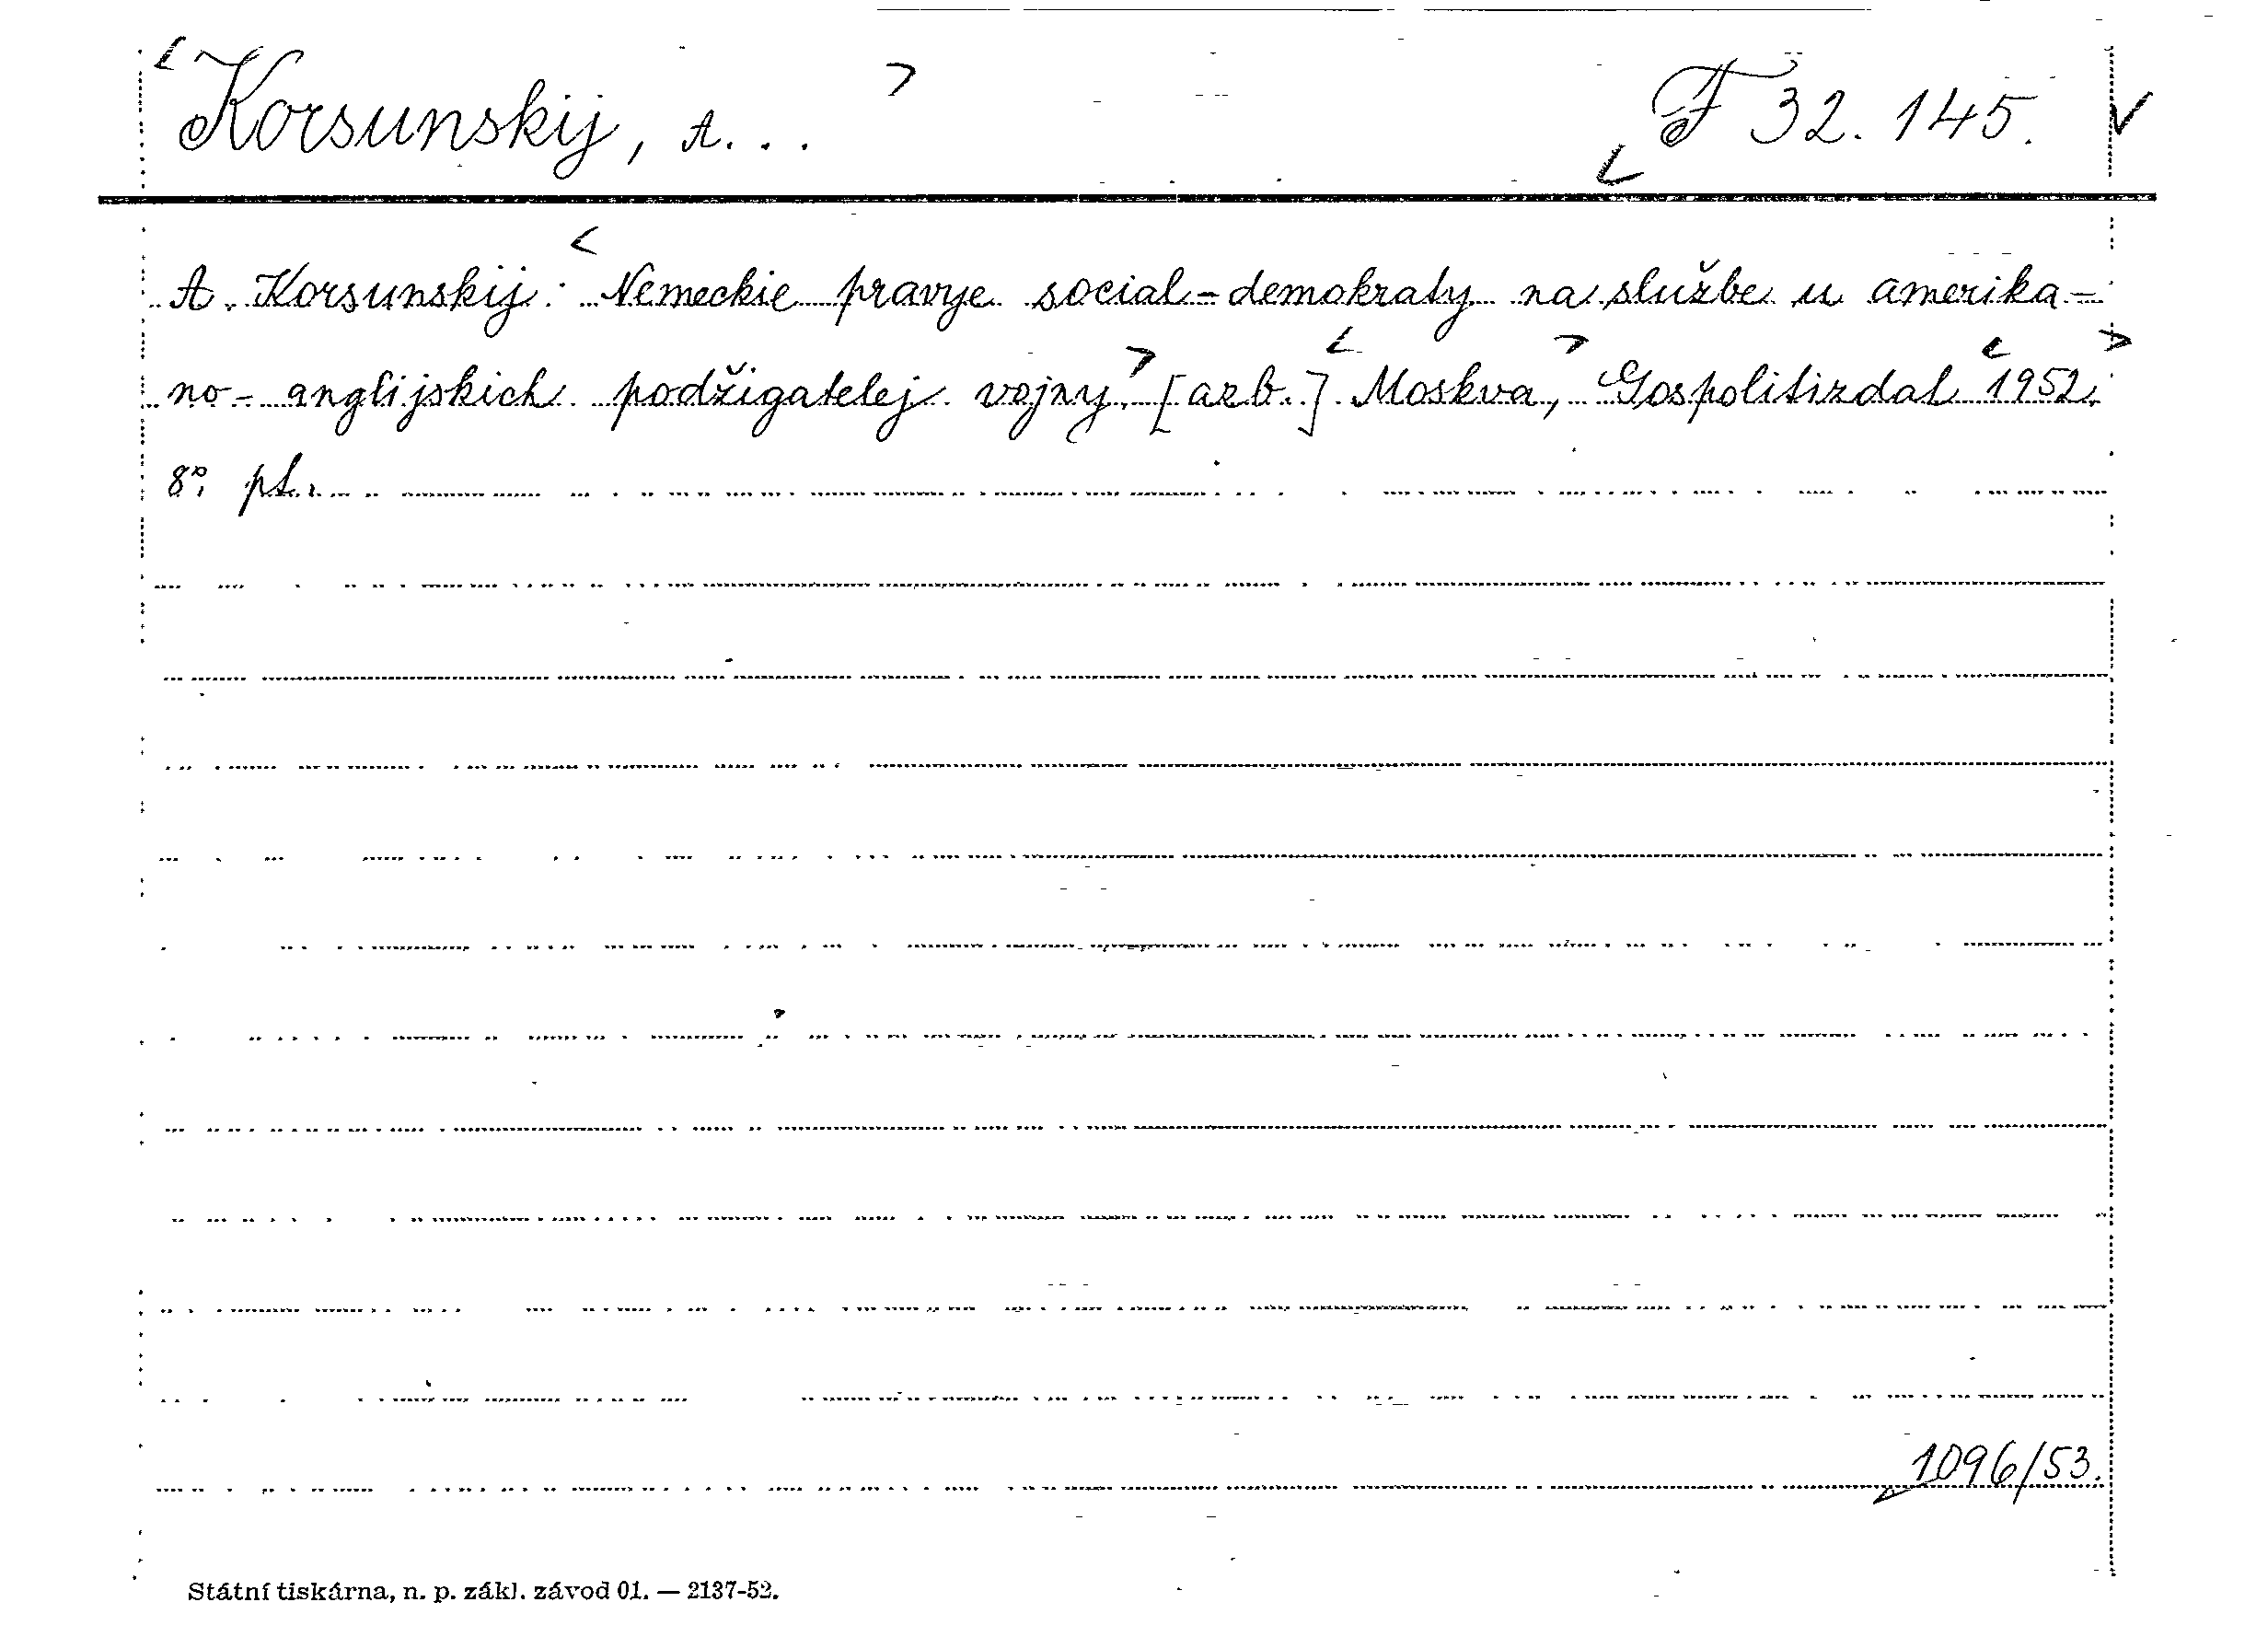 Korsunskij, A... F 32.145.
A. Korsunskij: Nemeckie pravye social-demokraty na službe u amerika-
no-anglijskich podžigatelej vojny. [azb.] Moskva, Gospolitizdat 1952.
8°. pt.
1096/53.
Státní tiskárna, n. p. zákl. závod 01. — 2137-52.